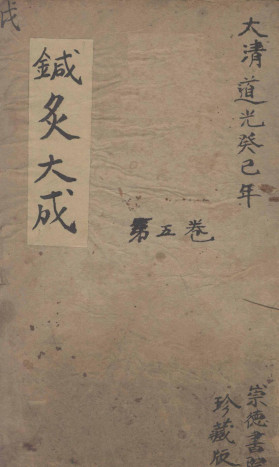 大清道光癸巳年
第五卷
鍼炙大成
崇德書
珍藏版